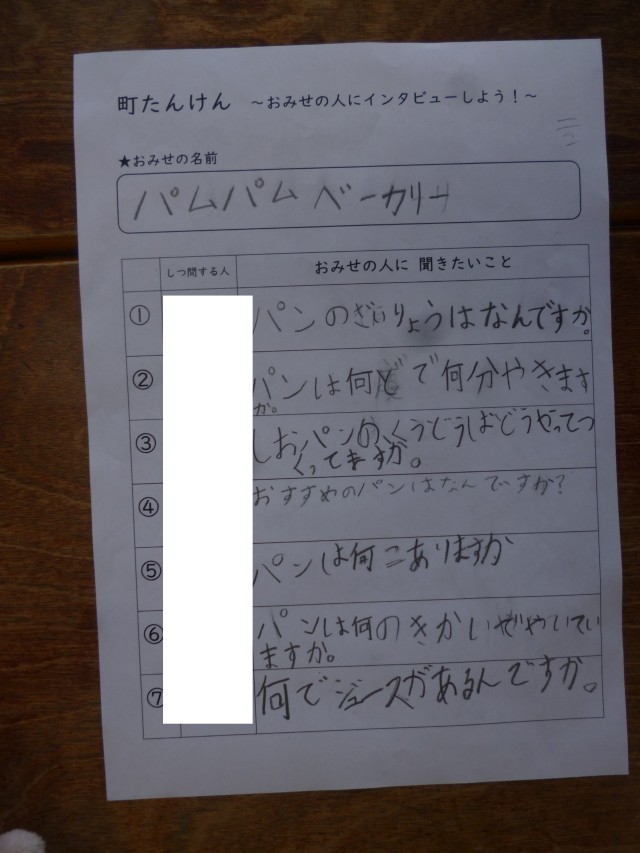 町たんけん ～おみせの人にインタビューしよう！～
★おみせの名前
パムパム ベーカリー
しつ問する人 おみせの人に 聞きたいこと
① パンのざいりょうはなんですか。
② パンは何どで何分やきます
か。
③ しおパンのくうどうはどうやってつ
くってますか。
④ おすすめのパンはなんですか?
⑤ パンは何こありますか
⑥ パンは何のきかいでやいてい
ますか。
⑦ 何でジュースがあるんですか。